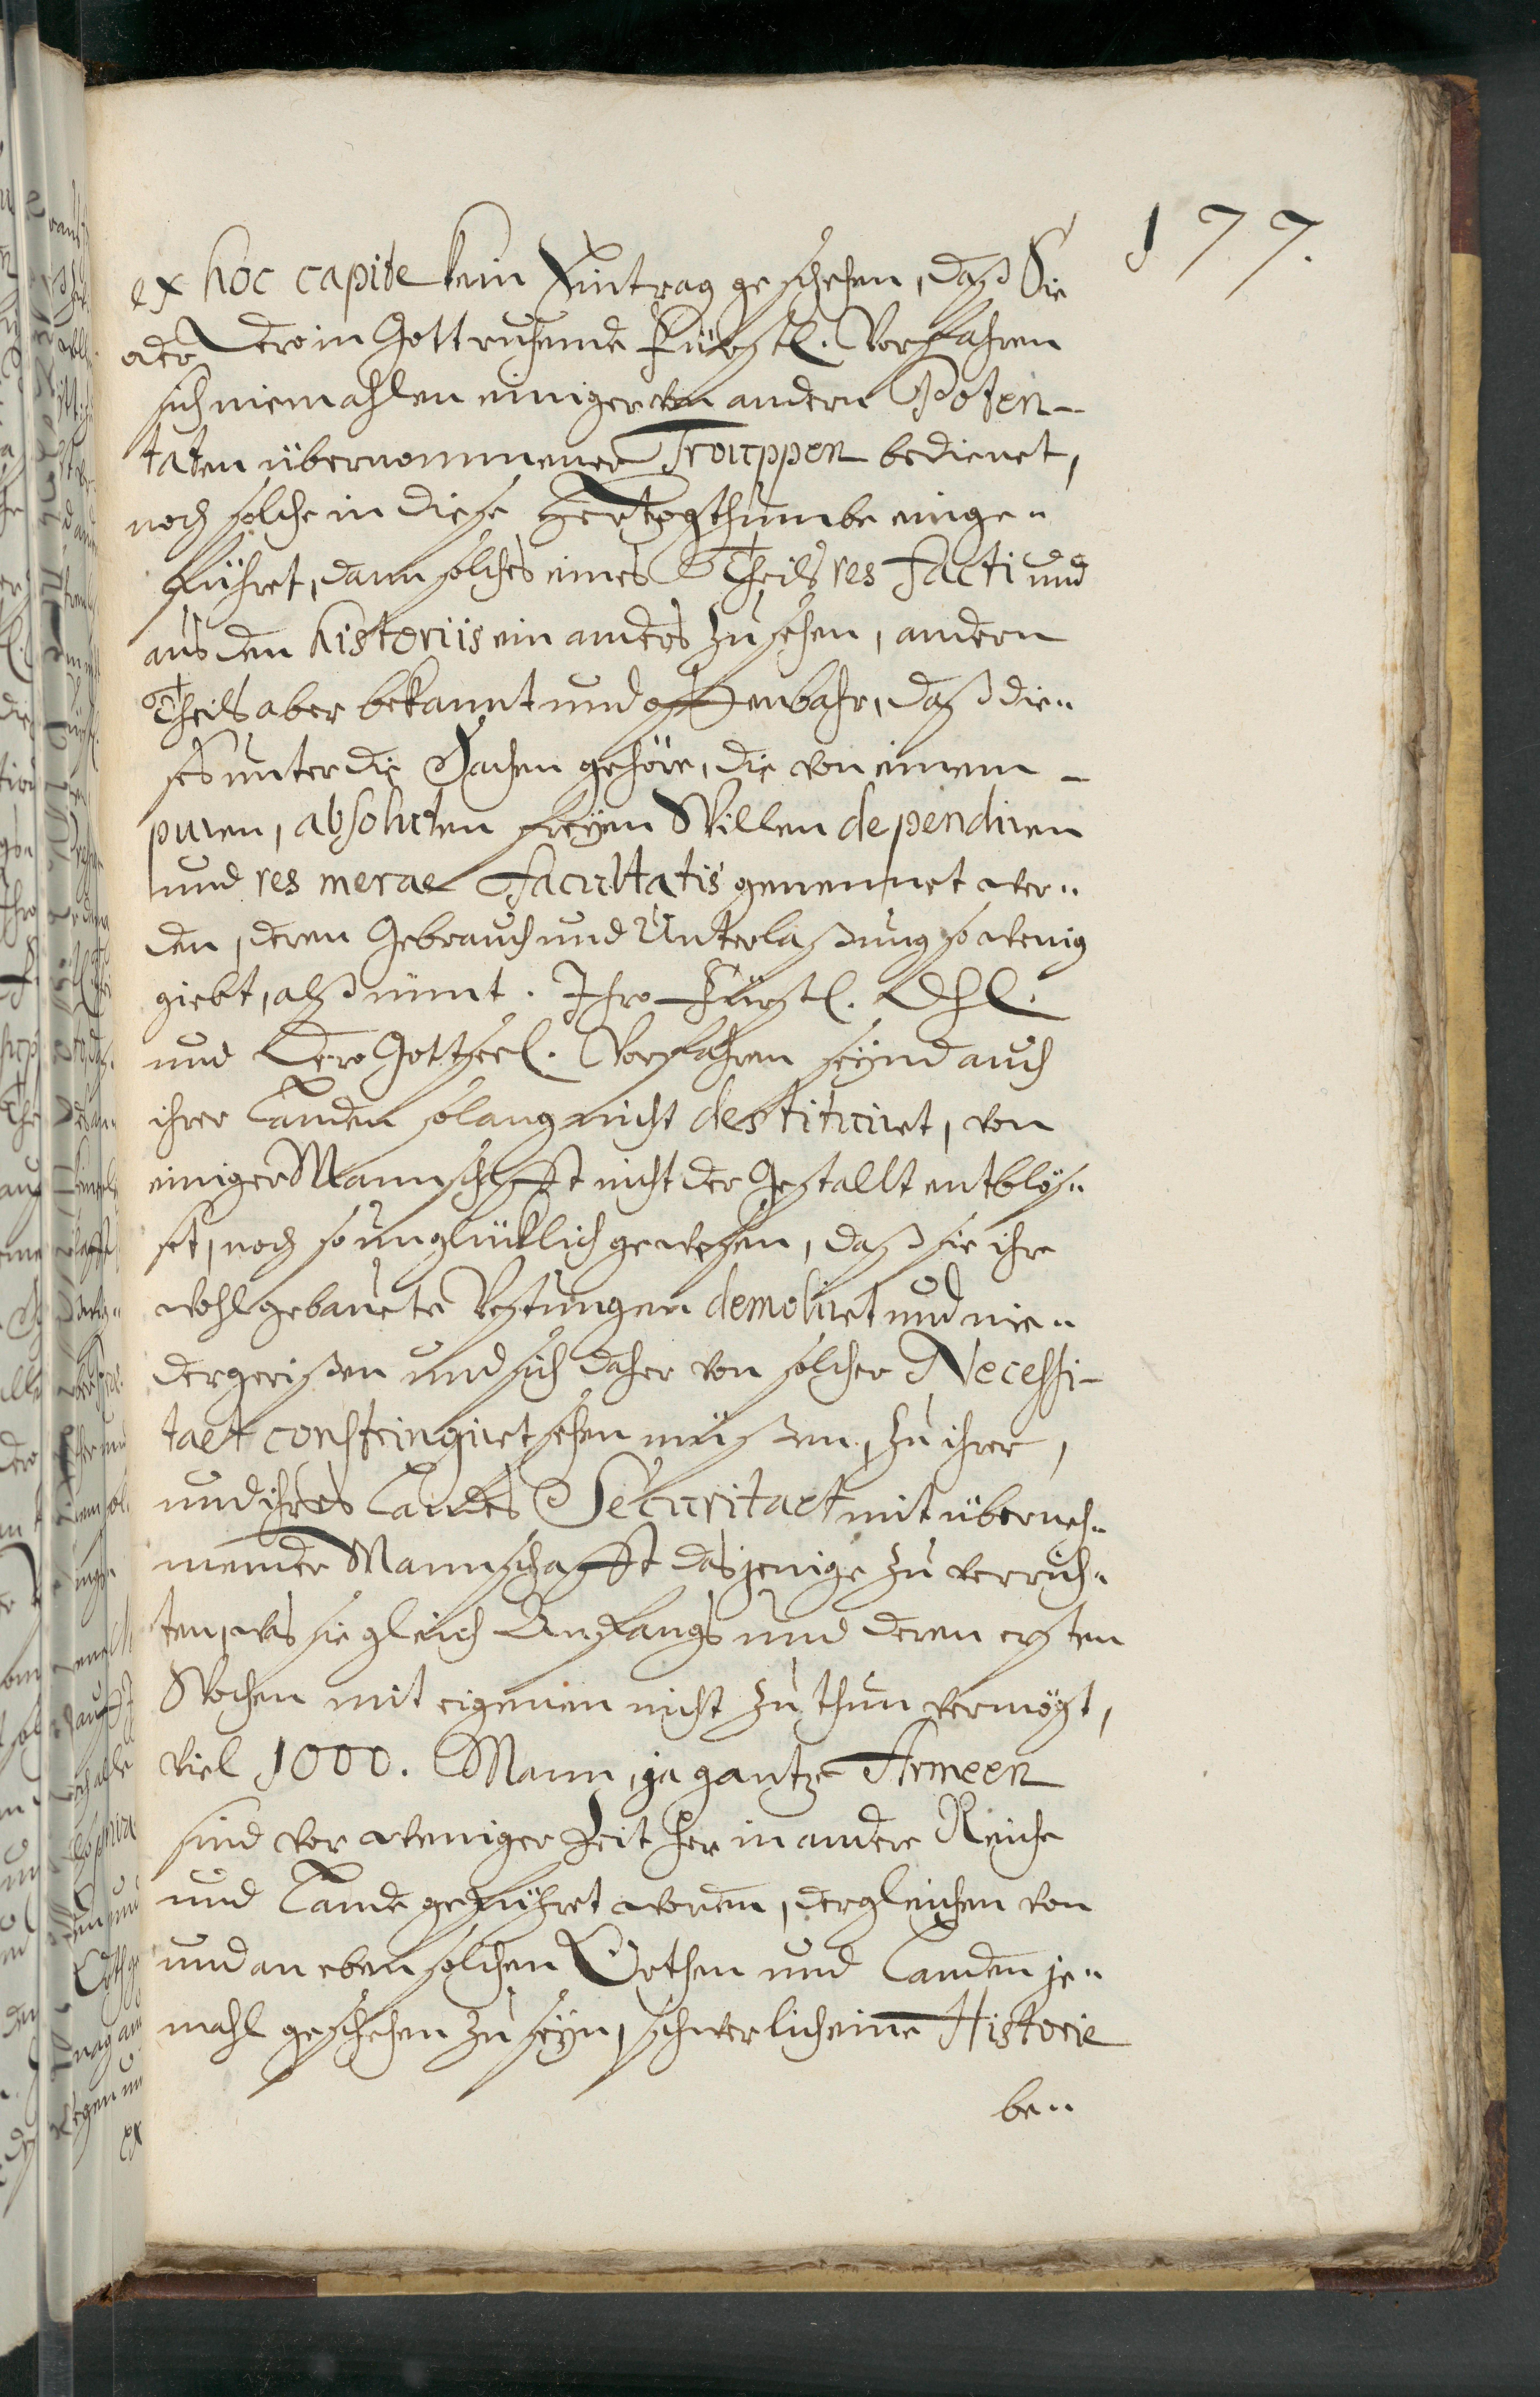 177.
ex hoc capite kein Eintrag geschehen, daß Sie
oder dero in Gott ruhende Fürstl. Vorfahren
sich niemahlen einiger von andern Poten-
taten übernommener Trouppen bedienet,
noch solche in diese Hertzogthumbe einge-
führet, dann solches eines Theils res facti und
aus den historiis ein anders zu sehen, andern
Theils aber bekannt und offenbahr, daß die-
ses unter die Sachen gehöre, die von einem
puren, absoluten freyen Willen dependiren
und res merae facultatis genennet wer-
den, deren Gebrauch und Unterlaßung so wenig
giebt, alß nimt. Ihro Fürstl. Dhl.
und Dero Gottseel. Vorfahren seynd auch
ihrer Landen solang nicht destituiret, von
einiger Mannschafft nicht der Gestallt entblös-
set, noch so unglücklich gewesen, daß sie ihre
wohlgebauete Vestungen demoliret und nie-
dergerißen und sich daher von solcher Necessi-
taet constringiret sehen müßen, zu ihrer,
und ihres Landes Securitaet mit überneh-
mender Mannschafft dasjenige zu verrich-
ten, was sie gleich Anfangs und deren ersten
Wochen mit eigenen nicht zu thun vermögt,
viel 1000. Mann, ja gantze Armeen
sind vor weniger Zeit her in andere Reiche
und Lande geführet worden, dergleichen von
und an eben solchen Orthen und Landen je-
mahl geschehen zu seyn, schwerlich eine Historie
be-